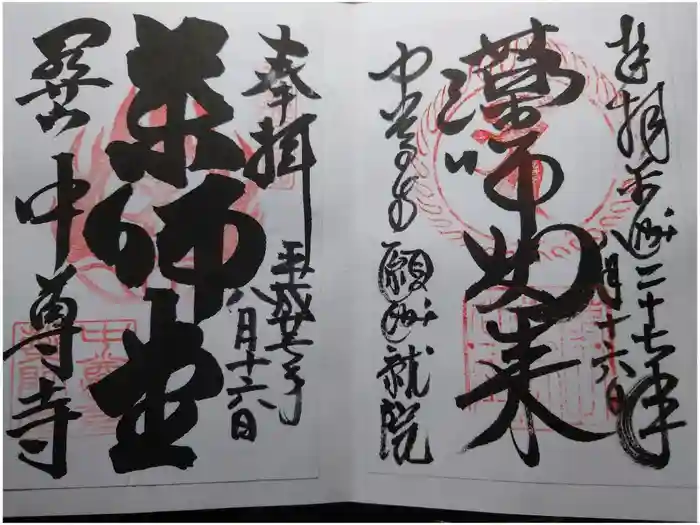 奉拝 平成二十七年 八月十六日
薬師如来
中尊寺 願成就院
奉拝
平成廿七年
八月十六日
薬師堂
関山 中尊寺